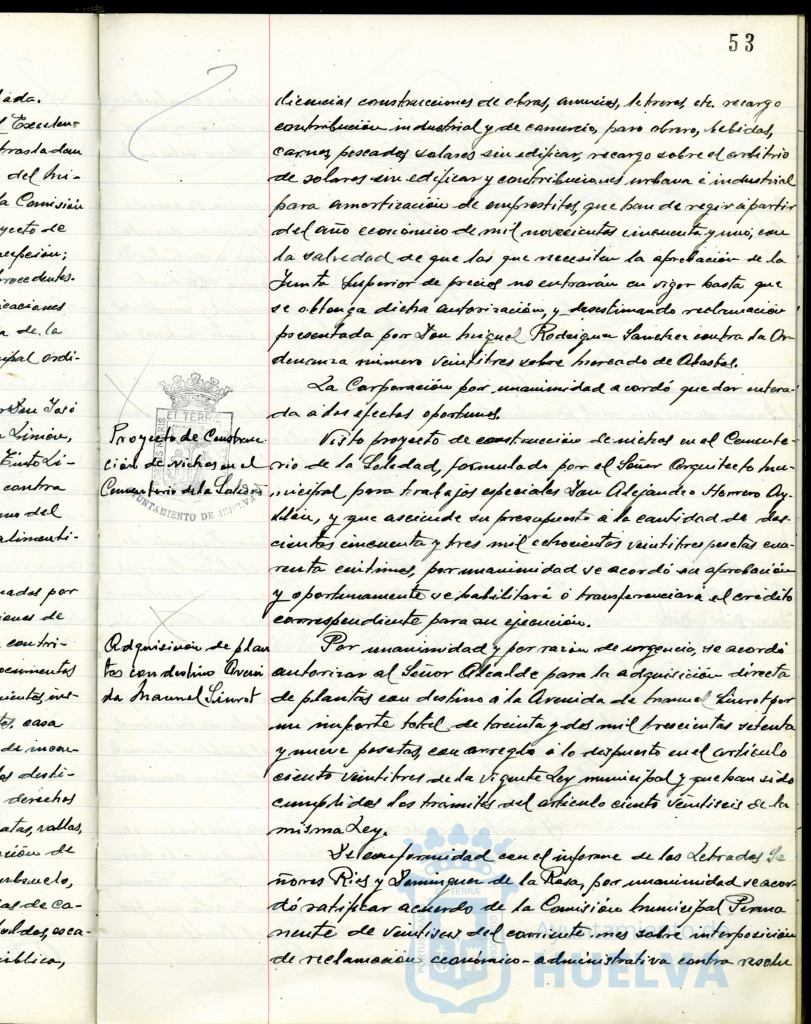 53
iada.
trasladan
del Mi-
la Comisión
yecto de
rocedentes.
icaciones
a de la
ipal ordi-
contra
mo del
alimenti-
nados por
iones de
contri-
ocumentos
casa
de incen-
desti-
derechos
atas, vallas,
ción de
as de ca-
ública,
licencias construcciones de obras, anuncios, letreros, etc. recargo
contribución industrial y de comercio, paro obrero, bebidas,
carnes, pescados, solares sin edificar, recargo sobre el arbitrio
de solares sin edificar y contribuciones urbana é industrial
para amortización de empréstitos, que han de regir á partir
del año económico de mil novecientos cincuenta y uno, con
la salvedad de que las que necesiten la aprobación de la
Junta Superior de precios no entrarán en vigor hasta que
se obtenga dicha autorización, y desestimando reclamación
presentada por Don Miguel Rodriguez Sanchez contra la Or-
denanza número veintitres sobre Mercado de Abastos.
La Corporación por unanimidad acordó quedar entera-
da á los efectos oportunos.
Proyecto de Construc-
ción de nichos en el
Cementerio de la Soledad
AYUNTAMIENTO DE HUELVA
Visto proyecto de construcción de nichos en el Cemente-
rio de la Soledad, formulado por el Señor Arquitecto Mu-
nicipal para trabajos especiales Don Alejandro Herrero Ay-
llón, y que asciende su presupuesto á la cantidad de dos-
cientas cincuenta y tres mil ochocientas veintitres pesetas cua-
renta céntimos, por unanimidad se acordó su aprobación
y oportunamente se habilitará ó transferenciará el crédito
correspondiente para su ejecución.
Adquisición de plan
tas con destino Aveni
da Manuel Siurot
Por unanimidad y por razón de urgencia, se acordó
autorizar al Señor Alcalde para la adquisición directa
de plantas con destino á la Avenida de Manuel Siurot por
un importe total de treinta y dos mil trescientas setenta
y nueve pesetas, con arreglo á lo dispuesto en el artículo
ciento veintitres de la vigente Ley municipal y que han sido
cumplidos los trámites del artículo ciento veintiseis de la
misma Ley.
De conformidad con el informe de los Letrados Se
ñores Rios y Dominguez de la Rosa, por unanimidad se acor
dó ratificar acuerdo de la Comisión Municipal Perma
nente de veintiseis del corriente mes sobre interposición
de reclamación económico-administrativa contra resolu
Ayuntamiento de
HUELVA